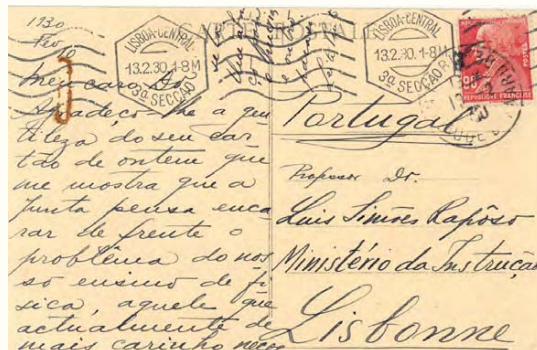 1930
Fev
10
CARTE POSTALE
LISBOA-CENTRAL
13.2.30.1-8M
3ª SECÇÃO
LISBOA-CENTRAL
13.2.30.1-8M
3ª SECÇÃO
90
POSTES
REPUBLIQUE FRANÇAISE
Meu caro
Agradeço-lhe a gen
tileza do seu car
tão de ontem que
me mostra que a
Junta pensa enca
rar de frente o
problêma do nos
so ensino de fí
sica, aquele que
actualmente de
mais carinho neces
Portugal
Professor Dr.
Luis Simões Rapôso
Ministério da Instrução
Lisbonne